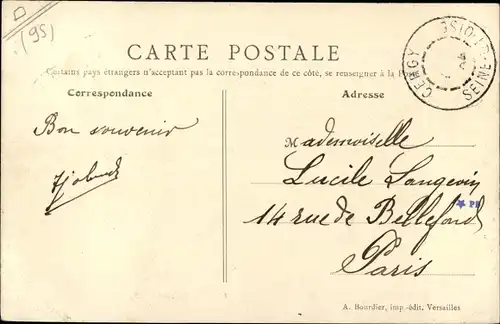 (95)
CARTE POSTALE
Certains pays étrangers n'acceptant pas la correspondance de ce côté, se renseigner à la Poste
Correspondance
Adresse
CERGY
SEINE-ET-OISE
Bon souvenir
Mademoiselle
Lucile Langevin
14 rue de Bellefond
Paris
A. Bourdier, imp.-édit, Versailles